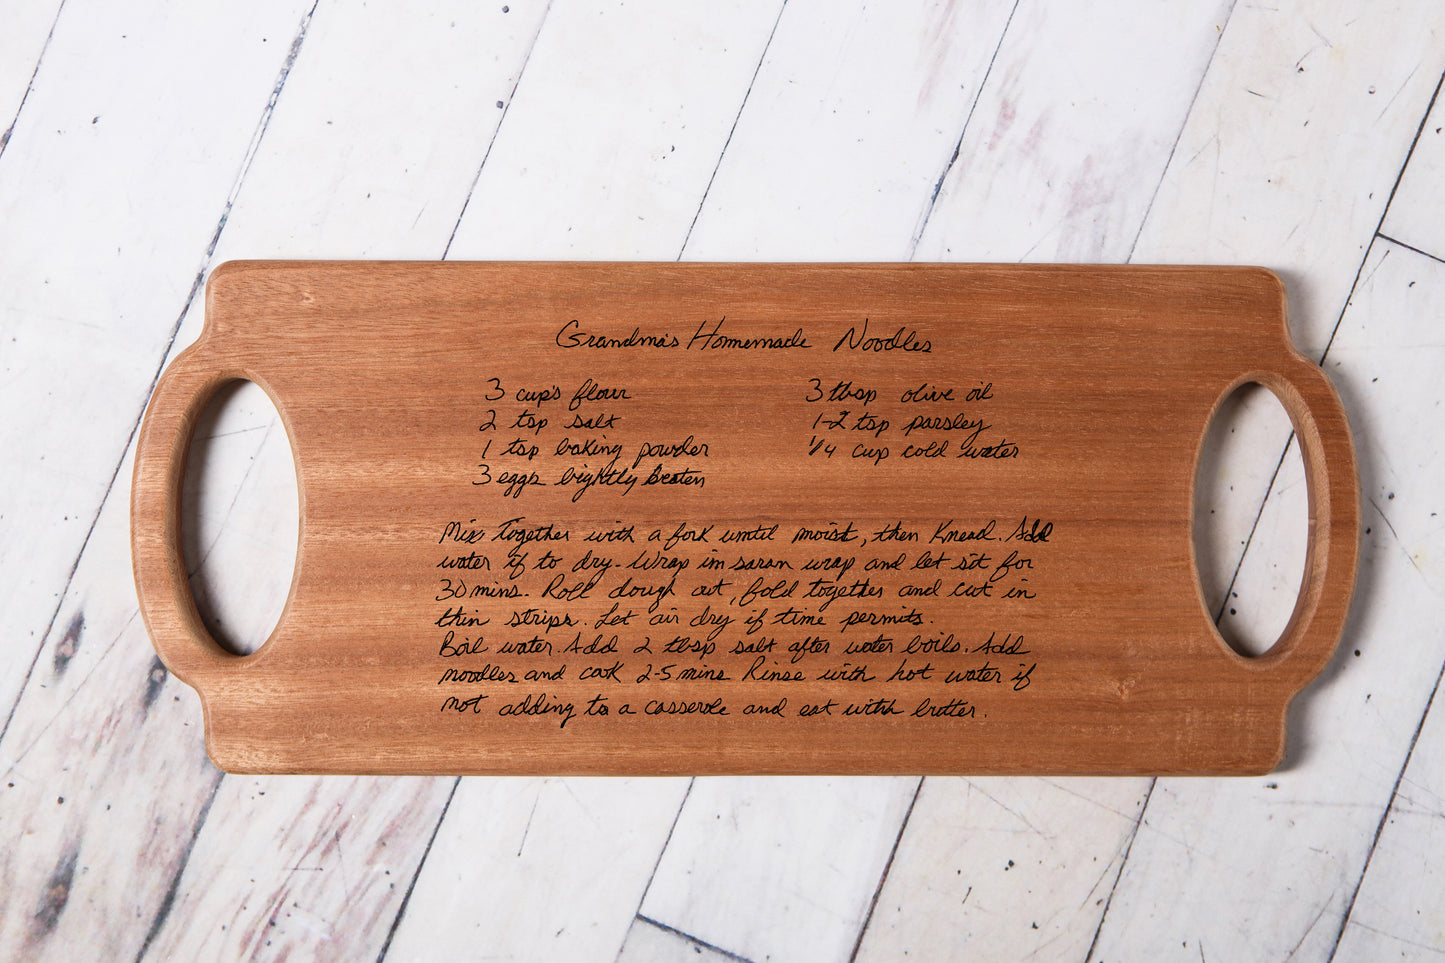 Grandma's Homemade Noodles
3 cup's flour
2 tsp salt
1 tsp baking powder
3 eggs lightly beaten
3 tbsp olive oil
1-2 tsp parsley
1/4 cup cold water
Mix together with a fork until moist, then Knead. Add
water if to dry. Wrap in saran wrap and let sit for
30 mins. Roll dough out, fold together and cut in
thin strips. Let air dry if time permits.
Boil water. Add 2 tbsp salt after water boils. Add
noodles and cook 2-5 mins Rinse with hot water if
not adding to a casserole and eat with butter.